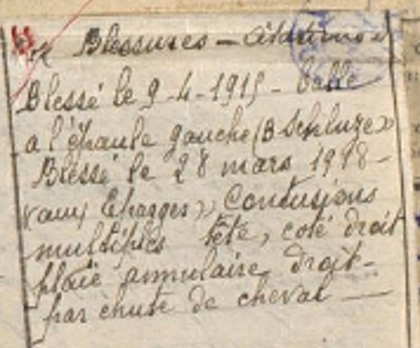 Blessures - Citations
Blessé le 9-4-1915 - balle
a l'épaule gauche (B Schluze»
Blessé le 28 mars 1918 -
«aux Eparges», Contusions
multiples tête, coté droit
plaie annulaire droit -
par chute de cheval —